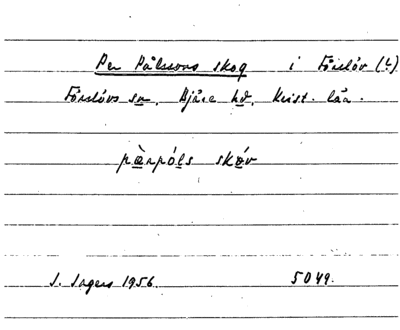 Per Pålssons skog i Förslöv (L)
Förslövs sn. Bjäre hd. Krist. län.
pærpóls skóv
S. Sagers 1956. 5049.